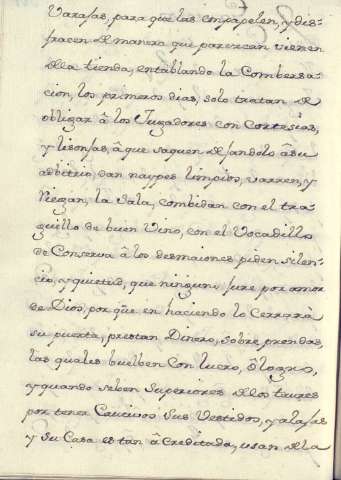 Varajas, para que las empapelen, y dis-
fracen de manera que parezcan vienen
de la tienda, entablando la Combersa-
cion, los primeros dias, solo tratan de
obligar â los Jugadores con Cortesias,
y lisonjas, â que saquen dejandolo â su
adbitrio, dan naypes limpios, varren, y
Riegan, la Sala, combidan con el tra-
guillo de buen Vino, con el Vocadillo
de Conserva â los desmaiones piden silen-
cio, y quietud, que ninguno jure por amor
de Dios, por qũe en haciendo lo Cerrarà
su puerta, prestan Dinero, sobre prendas,
las quales buelben Con lucro, ô logro,
y quando se ben Superiores de los
por tener Cautivos Sus Vestidos, y alajas
y su Casa estàn âcreditada, usan de la